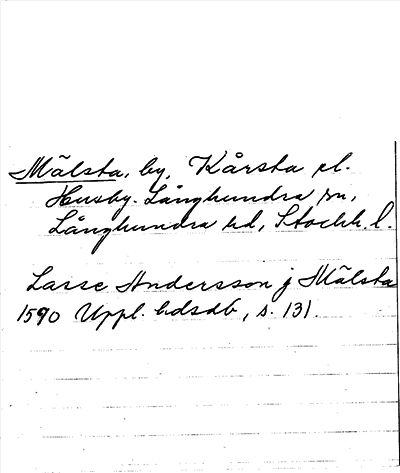 Mälsta, by, Kårsta el.
Husby-Långhundra sn,
Långhundra hd, Stockh. l.
Larse Andersson j Mälsta
1590 Uppl. hdsdb, s. 131.